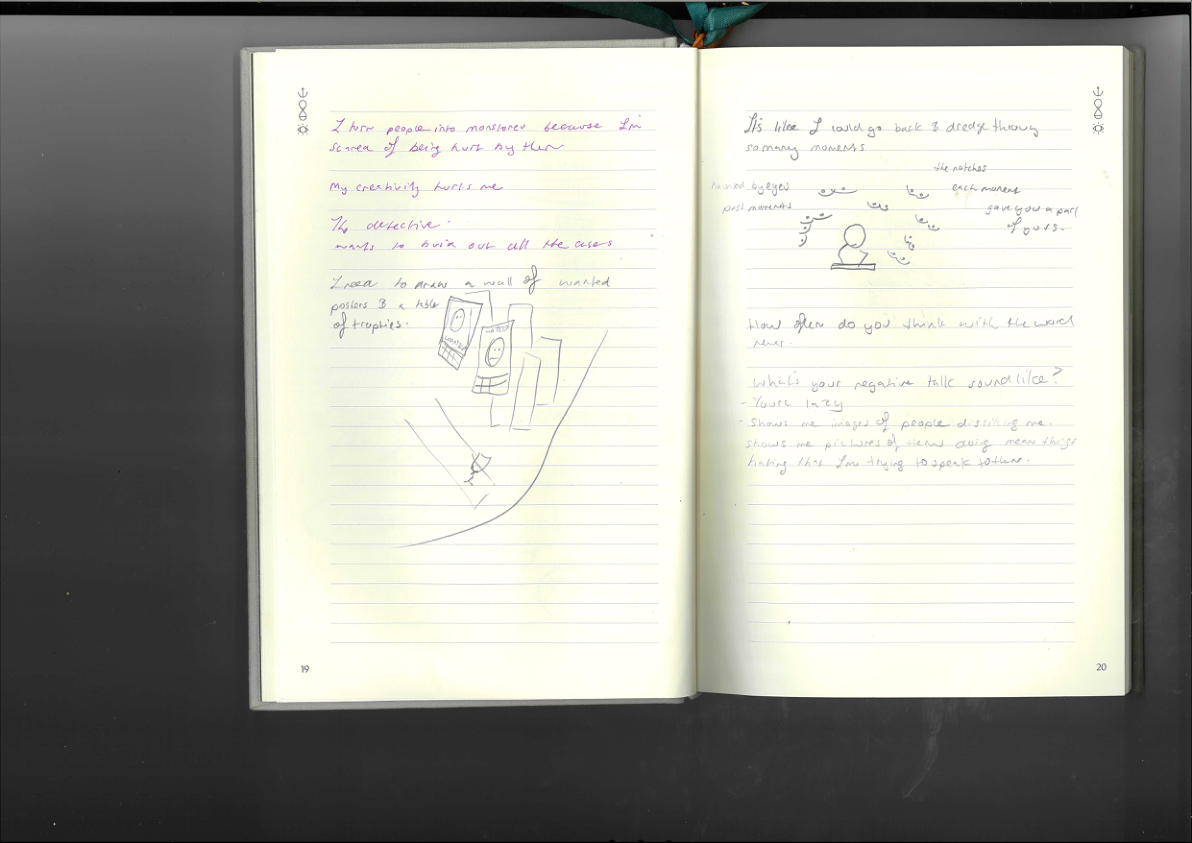 I turn people into monsters because I'm
scared of being hurt by them
My creativity hurts me
The detective.
wants to build out all the cases
I need to draw a wall of wanted
posters & a table
of trophies.
WANTED
WANTED
19
It's like I could go back & dredge through
so many moments
the watches
by eyes
each moment
past moments
gave you a part
of yours.
How often do you think with the word
never.
What's your negative talk sound like?
- You're lazy
- Shows me images of people dissing me.
shows me pictures of them doing mean things
hating that I'm trying to speak to them.
20